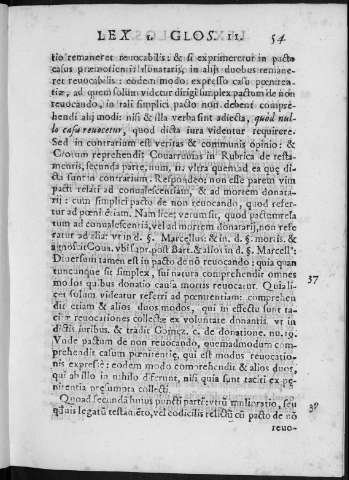 LEX 1. GLOS. 11. 54
tio remaneret reuocabilis: & si exprimeretur in pacto
casus præmorientis donatarij, in alijs duobus remane-
ret reuocabilis: eodem modo: expresso casu pœniten-
tiæ, ad quem solum videtur dirigi simplex pactum de non
reuocando, in tali simplici pacto non debent compre-
hendi alij modi: nisi & illa verba sint adiecta, quòd nul-
lo casu reuocetur, quod dicta iura videntur requirere.
Sed in contrarium est veritas & communis opinio: &
reprehendit Couarruuia in Rubrica de testa-
mentis, secunda parte, num, 11. vltra quem ad ea quę di-
cta sunt in contrarium. Respondeo: non esse parem vim
pacti relati ad conualescentiam, & ad mortem donata-
rij: cum simplici pacto de non reuocando, quod refer-
tur ad pœnitētiam. Nam licet verum sit, quod pactum rela-
tum ad conualescentiã, vel ad mortem donatarij, non refe-
ratur ad alia: vt in d. §. Marcellus: & in d. §. mortis. &
agnoscit Goua. vbi supr. post Bart. & alios in d. §. Marcell⁹:
Diuersum tamen est in pacto de nõ reuocando: quia quan
tuncunque sit simplex, sui natura comprehendit omnes
modos quibus donatio causa mortis reuocatur. Quia li- 37
cet solum videatur referri ad pœnitentiam: comprehen
dit etiam & alios duos modos, qui in effectu sunt ta-
citæ reuocationes collectę ex voluntate donantis. vt in
dictis iuribus. & tradit Gomez. c. de donatione. nu. 19.
Vnde pactum de non reuocando, quemadmodum com-
prehendit casum pœnitentię, qui est modus reuocatio-
nis expressę: eodem modo comprehendit & alios duos,
qui ab illo in nihilo diferunt, nisi quia sunt taciti ex pę-
nitentia præsumpta collecti.
Quoad secundã huius puncti partē: vtrũ melioratio, seu 38
quãuis legatũ testamēto, vel codicilis relictũ cũ pacto de nõ
reuo-